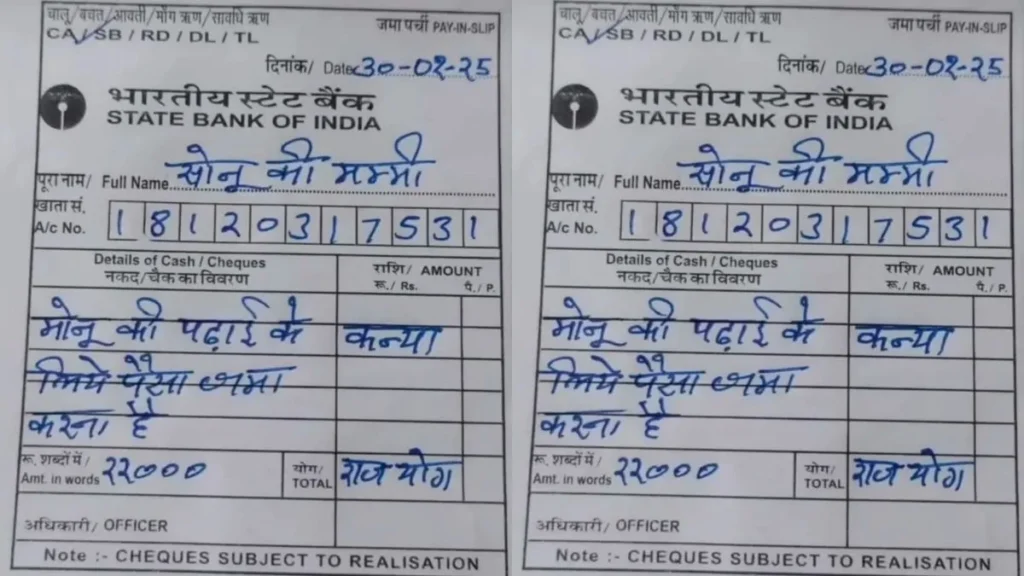 चालू/बचत/आवर्ती/माँग ऋण/सावधि ऋण
CA/SB / RD / DL / TL
जमा पर्ची PAY-IN-SLIP
दिनांक/ Date 30-0१-२5
भारतीय स्टेट बैंक
STATE BANK OF INDIA
पूरा नाम/ Full Name सोनू की मम्मी
खाता सं.
A/c No. 1 8 1 2 0 3 1 7 5 3 1
Details of Cash / Cheques
नकद/चैक का विवरण
राशि/ AMOUNT
रू./ Rs. पै./ P.
मोनू की पढ़ाई के कन्या
लिये पैसा जमा
करना है
रू. शब्दों में/
Amt. in words २२०००
योग/
TOTAL राज योग
अधिकारी/ OFFICER
Note :- CHEQUES SUBJECT TO REALISATION
चालू/बचत/आवर्ती/माँग ऋण/सावधि ऋण
CA/SB / RD / DL / TL
जमा पर्ची PAY-IN-SLIP
दिनांक/ Date 30-0१-२5
भारतीय स्टेट बैंक
STATE BANK OF INDIA
पूरा नाम/ Full Name सोनू की मम्मी
खाता सं.
A/c No. 1 8 1 2 0 3 1 7 5 3 1
Details of Cash / Cheques
नकद/चैक का विवरण
राशि/ AMOUNT
रू./ Rs. पै./ P.
मोनू की पढ़ाई के कन्या
लिये पैसा जमा
करना है
रू. शब्दों में/
Amt. in words २२०००
योग/
TOTAL राज योग
अधिकारी/ OFFICER
Note :- CHEQUES SUBJECT TO REALISATION